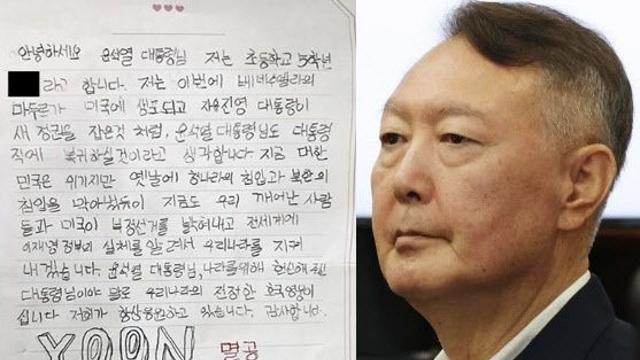 안녕하세요 윤석열 대통령님 저는 초등학교 5학년
라고 합니다. 저는 이번에 베네수엘라의
마두로가 미국에 생포되고 자유진영 대통령이
새 정권을 잡은것 처럼, 윤석열 대통령님도 대통령
직에 복귀하실것이라고 생각합니다. 지금 대한
민국은 위기지만 옛날에 청나라의 침입과 북한의
침입을 막아 지금도 우리 깨어난 사람
들과 미국이 부정선거를 밝혀내고 전세계에
이재명 정부의 실체를 알고 우리나라를 지켜
내겠습니다. 윤석열 대통령님, 나라를위해 헌신해
대통령님이야 말로 우리나라의 진정한 호국영웅이
십니다 저희가 항상응원하고 있습니다. 감사합니다.
YOON 멸공